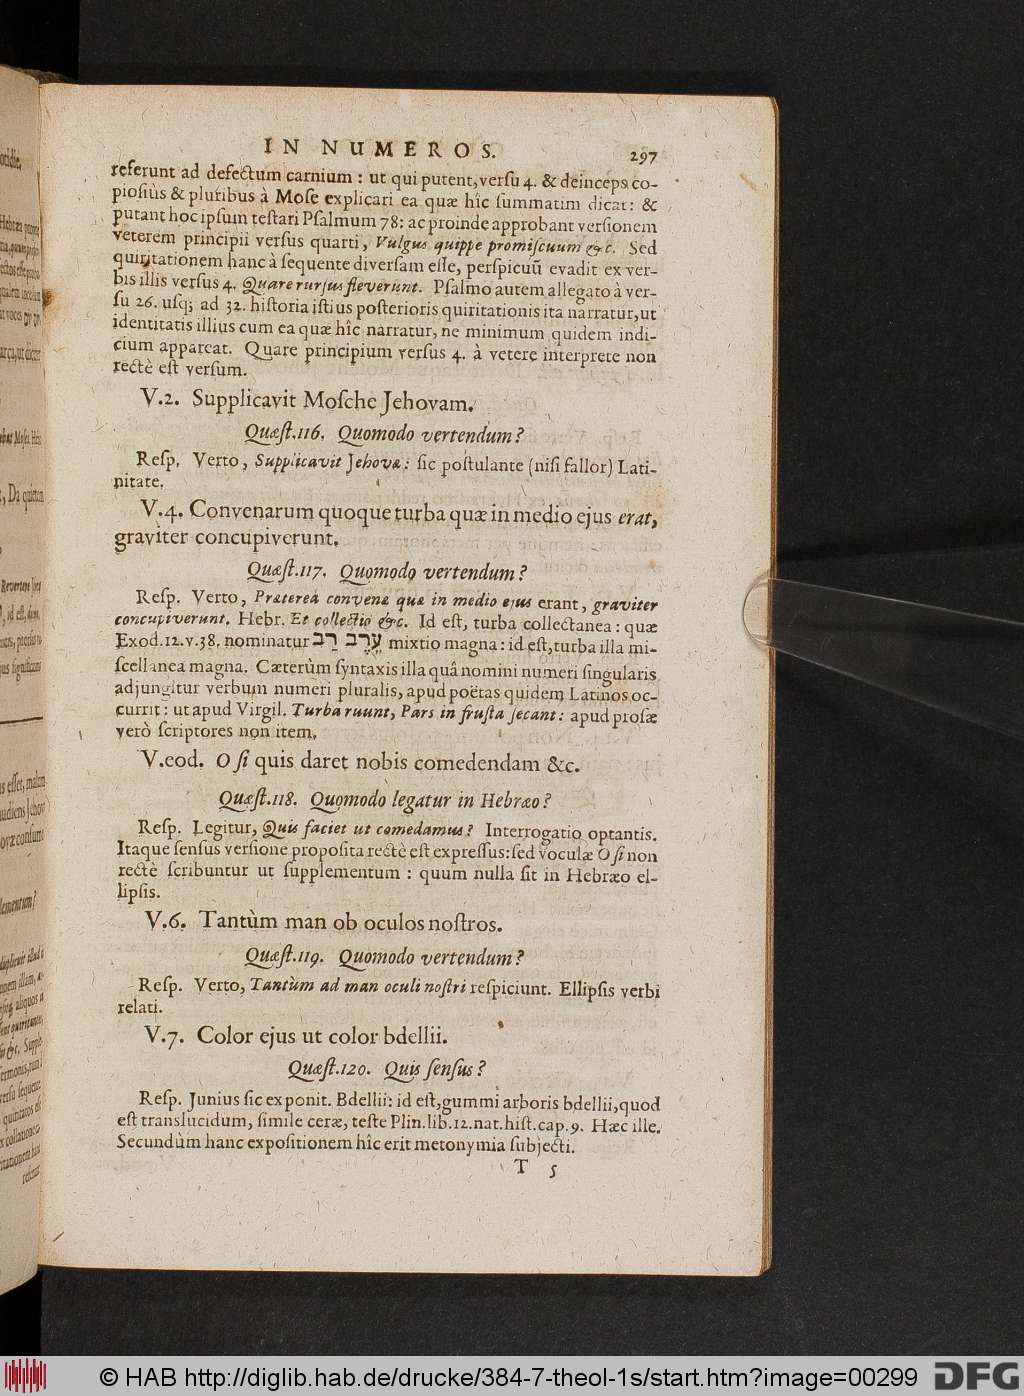 IN NUMEROS. 297
referunt ad defectum carnium : ut qui putent, versu 4. & deinceps co-
piosiùs & pluribus à Mose explicari ea quæ hîc summatim dicat : &
putant hoc ipsum testari Psalmum 78 : ac proinde approbant versionem
veterem principii versus quarti, Vulgus quippe promiscuum &c. Sed
quiritationem hanc à sequente diversam esse, perspicuũ evadit ex ver-
bis illis versus 4. Quare rursus fleverunt. Psalmo autem allegato à ver-
su 26. usq; ad 32. historia istius posterioris quiritationis ita narratur, ut
identitatis illius cum ea quæ hîc narratur, ne minimum quidem indi-
cium appareat. Quare principium versus 4. à vetere interprete non
rectè est versum.
V.2. Supplicavit Mosche Jehovam.
Quæst.116. Quomodo vertendum?
Resp. Verto, Supplicavit Jehovæ : sic postulante (nisi fallor) Lati-
nitate.
V.4. Convenarum quoque turba quæ in medio ejus erat,
graviter concupiverunt.
Quæst.117. Quomodo vertendum?
Resp. Verto, Præterea convenæ quæ in medio ejus erant, graviter
concupiverunt. Hebr. Et collectio &c. Id est, turba collectanea : quæ
Exod.12.v.38. nominatur עֵרֶב רַב mixtio magna : id est, turba illa mi-
scellanea magna. Cæterùm syntaxis illa quâ nomini numeri singularis
adjungitur verbum numeri pluralis, apud poëtas quidem Latinos oc-
currit : ut apud Virgil. Turba ruunt, Pars in frusta secant : apud prosæ
verò scriptores non item.
V.eod. O si quis daret nobis comedendam &c.
Quæst.118. Quomodo legatur in Hebræo?
Resp. Legitur, Quis faciet ut comedamus? Interrogatio optantis.
Itaque sensus versione proposita rectè est expressus : sed voculæ O si non
rectè scribuntur ut supplementum : quum nulla sit in Hebræo el-
lipsis.
V.6. Tantùm man ob oculos nostros.
Quæst.119. Quomodo vertendum?
Resp. Verto, Tantùm ad man oculi nostri respiciunt. Ellipsis verbi
relati.
V.7. Color ejus ut color bdellii.
Quæst.120. Quis sensus?
Resp. Junius sic exponit. Bdellii : id est, gummi arboris bdellii, quod
est translucidum, simile ceræ, teste Plin.lib.12.nat.hist.cap.9. Hæc ille.
Secundùm hanc expositionem hîc erit metonymia subjecti.
T 5
© HAB http://diglib.hab.de/drucke/384-7-theol-1s/start.htm?image=00299
DFG